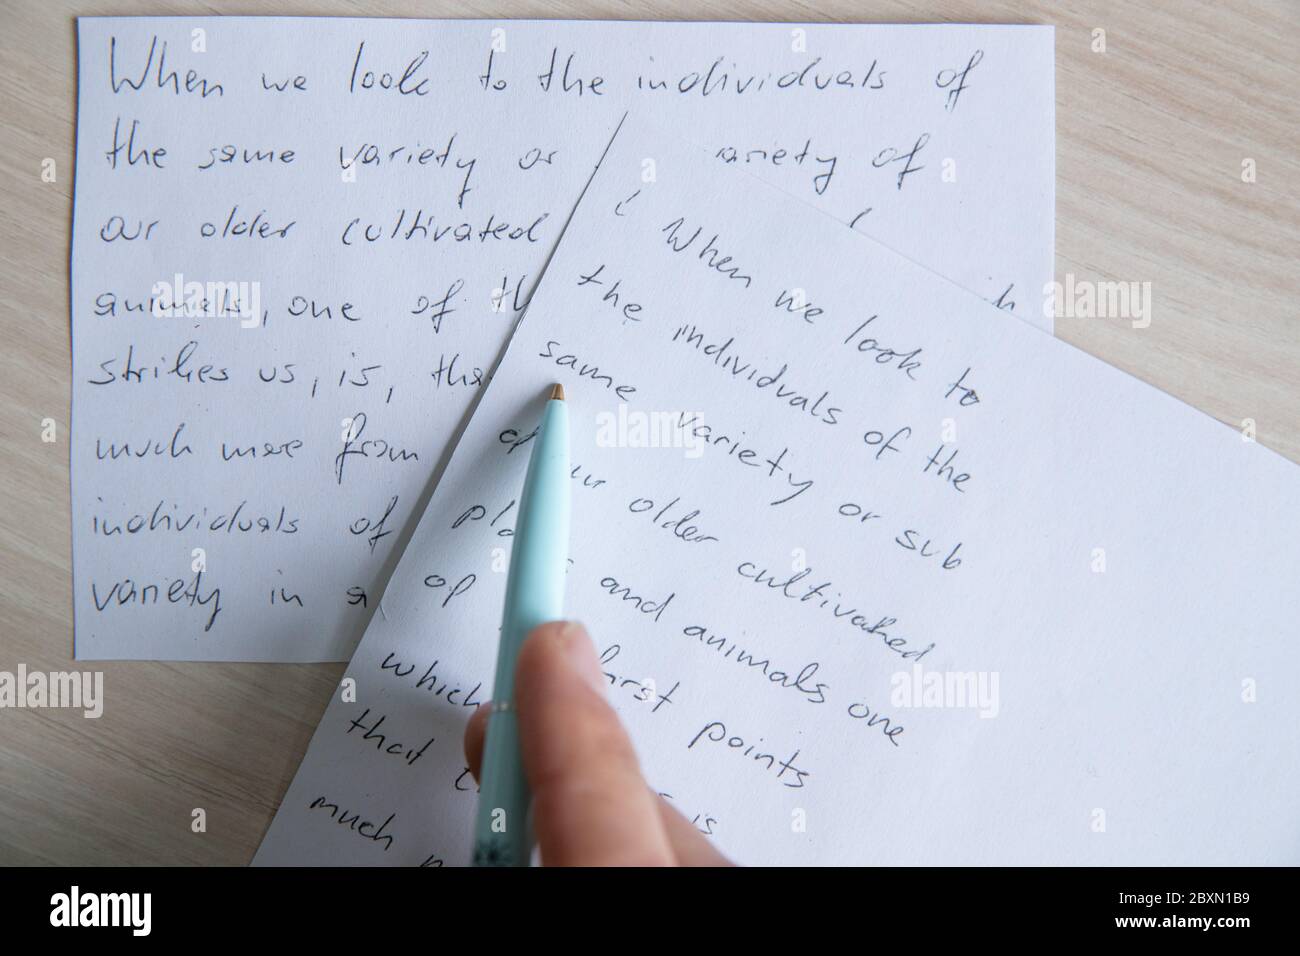 When we look to the individuals of
the same variety or variety of
our older cultivated
animals, one of th
strikes us, is, tha
much more from
individuals of
variety in a
When we look to
the individuals of the
same variety or sub
of our older cultivated
and animals one
of first points
which
that is
much
alamy
Image ID: 2BXN1B9
www.alamy.com